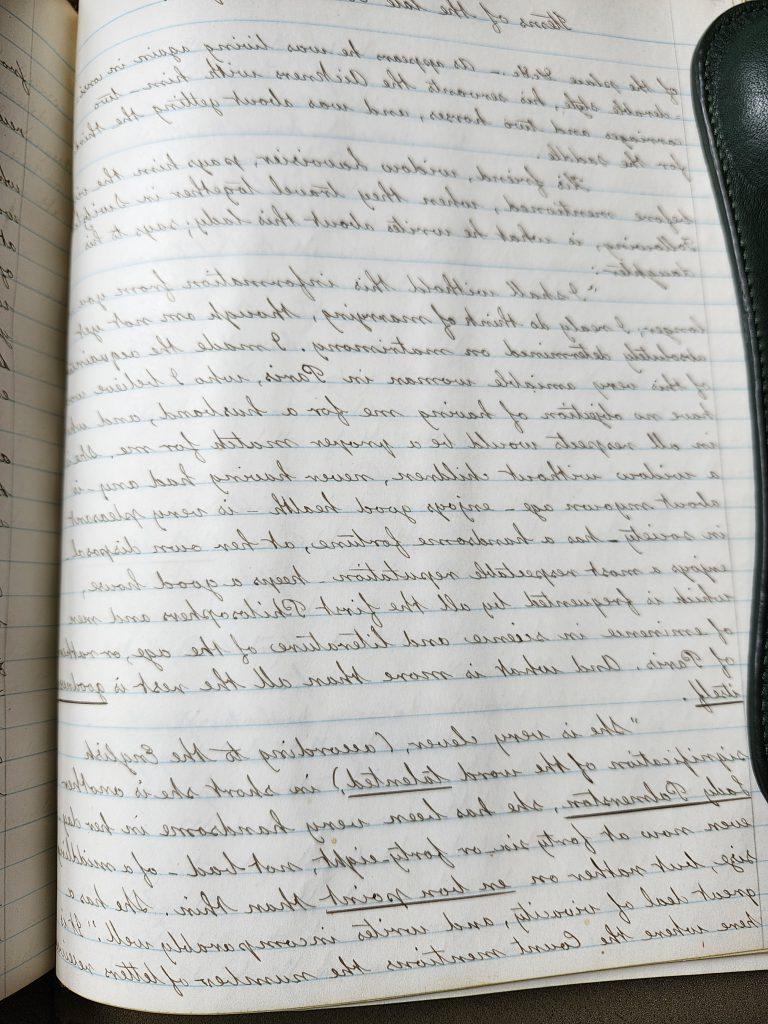 Items of the late
of the palace — As appears he was living again in cons
iderable style, his servants the Aickners with him — two
carriages and two horses, and was about getting the third
for the saddle.
His friend, widow Lavoisier, pays him the
before mentioned, when they travel together in Switz
following, is what he writes about this lady, says to his
daughter:
"I shall withold this information from you
longer, I realy do think of marrying, though am not yet
absolutely determined on matrimony. I made the acquain
of this very amiable woman in Paris, who I believe w
have no objection of having me for a husband, and wh
in all respects would be a proper match for me. She is
a widow without children, never having had any — is
about my own age — enjoys good health — is very pleasant
in society — has a handsome fortune, at her own disposal
enjoys a most respectable reputation keeps a good house,
which is frequented by all the first Philosophers and men
of eminence in science and literature of the age, or rather
of Paris. And what is more than all the rest is goodness
itself.
"She is very clever, (according to the English
signification of the word talented), in short she is another
Lady Palmerston, she has been very handsome in her day
even now at forty six or forty-eight, not bad — of a middling
size, but rather en bon point than thin. She has a
great deal of vivacity, and writes incomparably well." It is
here where the Count mentions the number of letters receiv